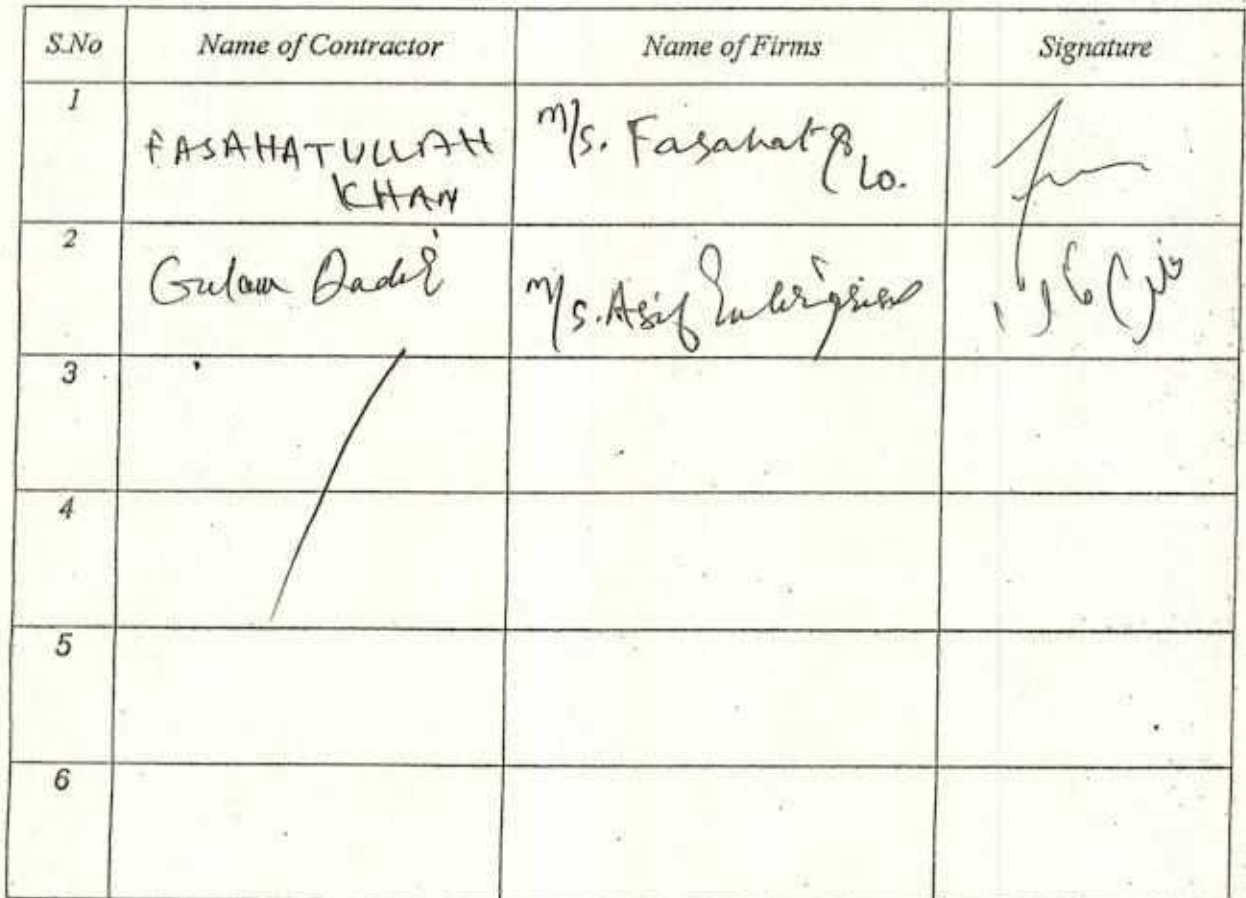 S.No Name of Contractor Name of Firms Signature
1
FASAHATULLAH
KHAN
M/s. Fasahat &
Co.
2
Gulam
M/s. Asif
3
4
5
6